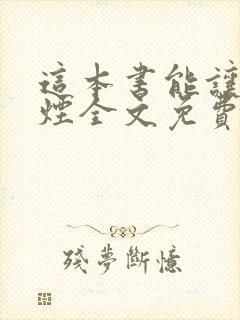 這本書能讓
煙全文免費
殘夢斷憶